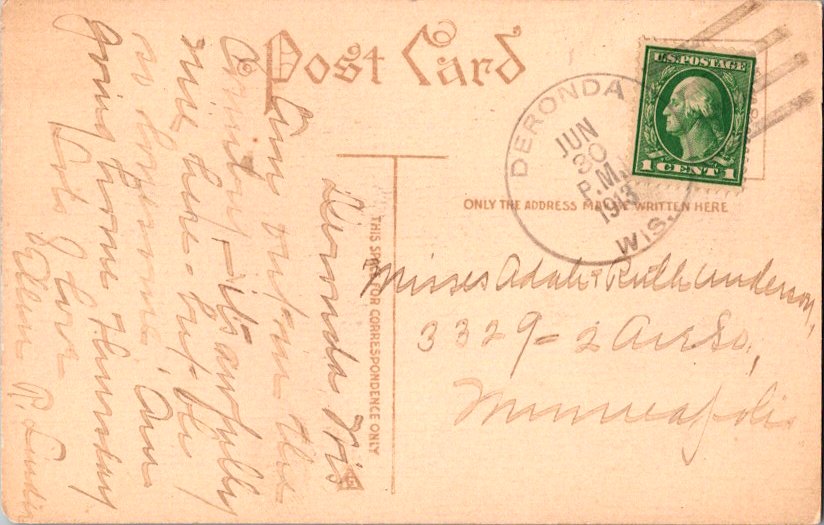 Post Card
U.S. POSTAGE
1 CENT 1
DERONDA
JUN
30
P.M.
1913
WIS.
ONLY THE ADDRESS MAY BE WRITTEN HERE
THIS SPACE FOR CORRESPONDENCE ONLY
Misses Adah & Ruth Anderson,
3329 - 2 Ave So,
Minneapolis
Deronda, Wis
Am out in the
Country - its awfully
nice here - but Oh
so lonesome. Am
going home Thursday
Lots of love
Ellen R.